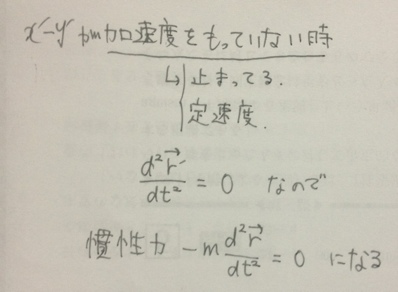 x'-y' が加速度をもっていない時
↳ 止まってる.
定速度.
d²r⃗/dt² = 0 なので
慣性力 -m d²r⃗/dt² = 0 になる